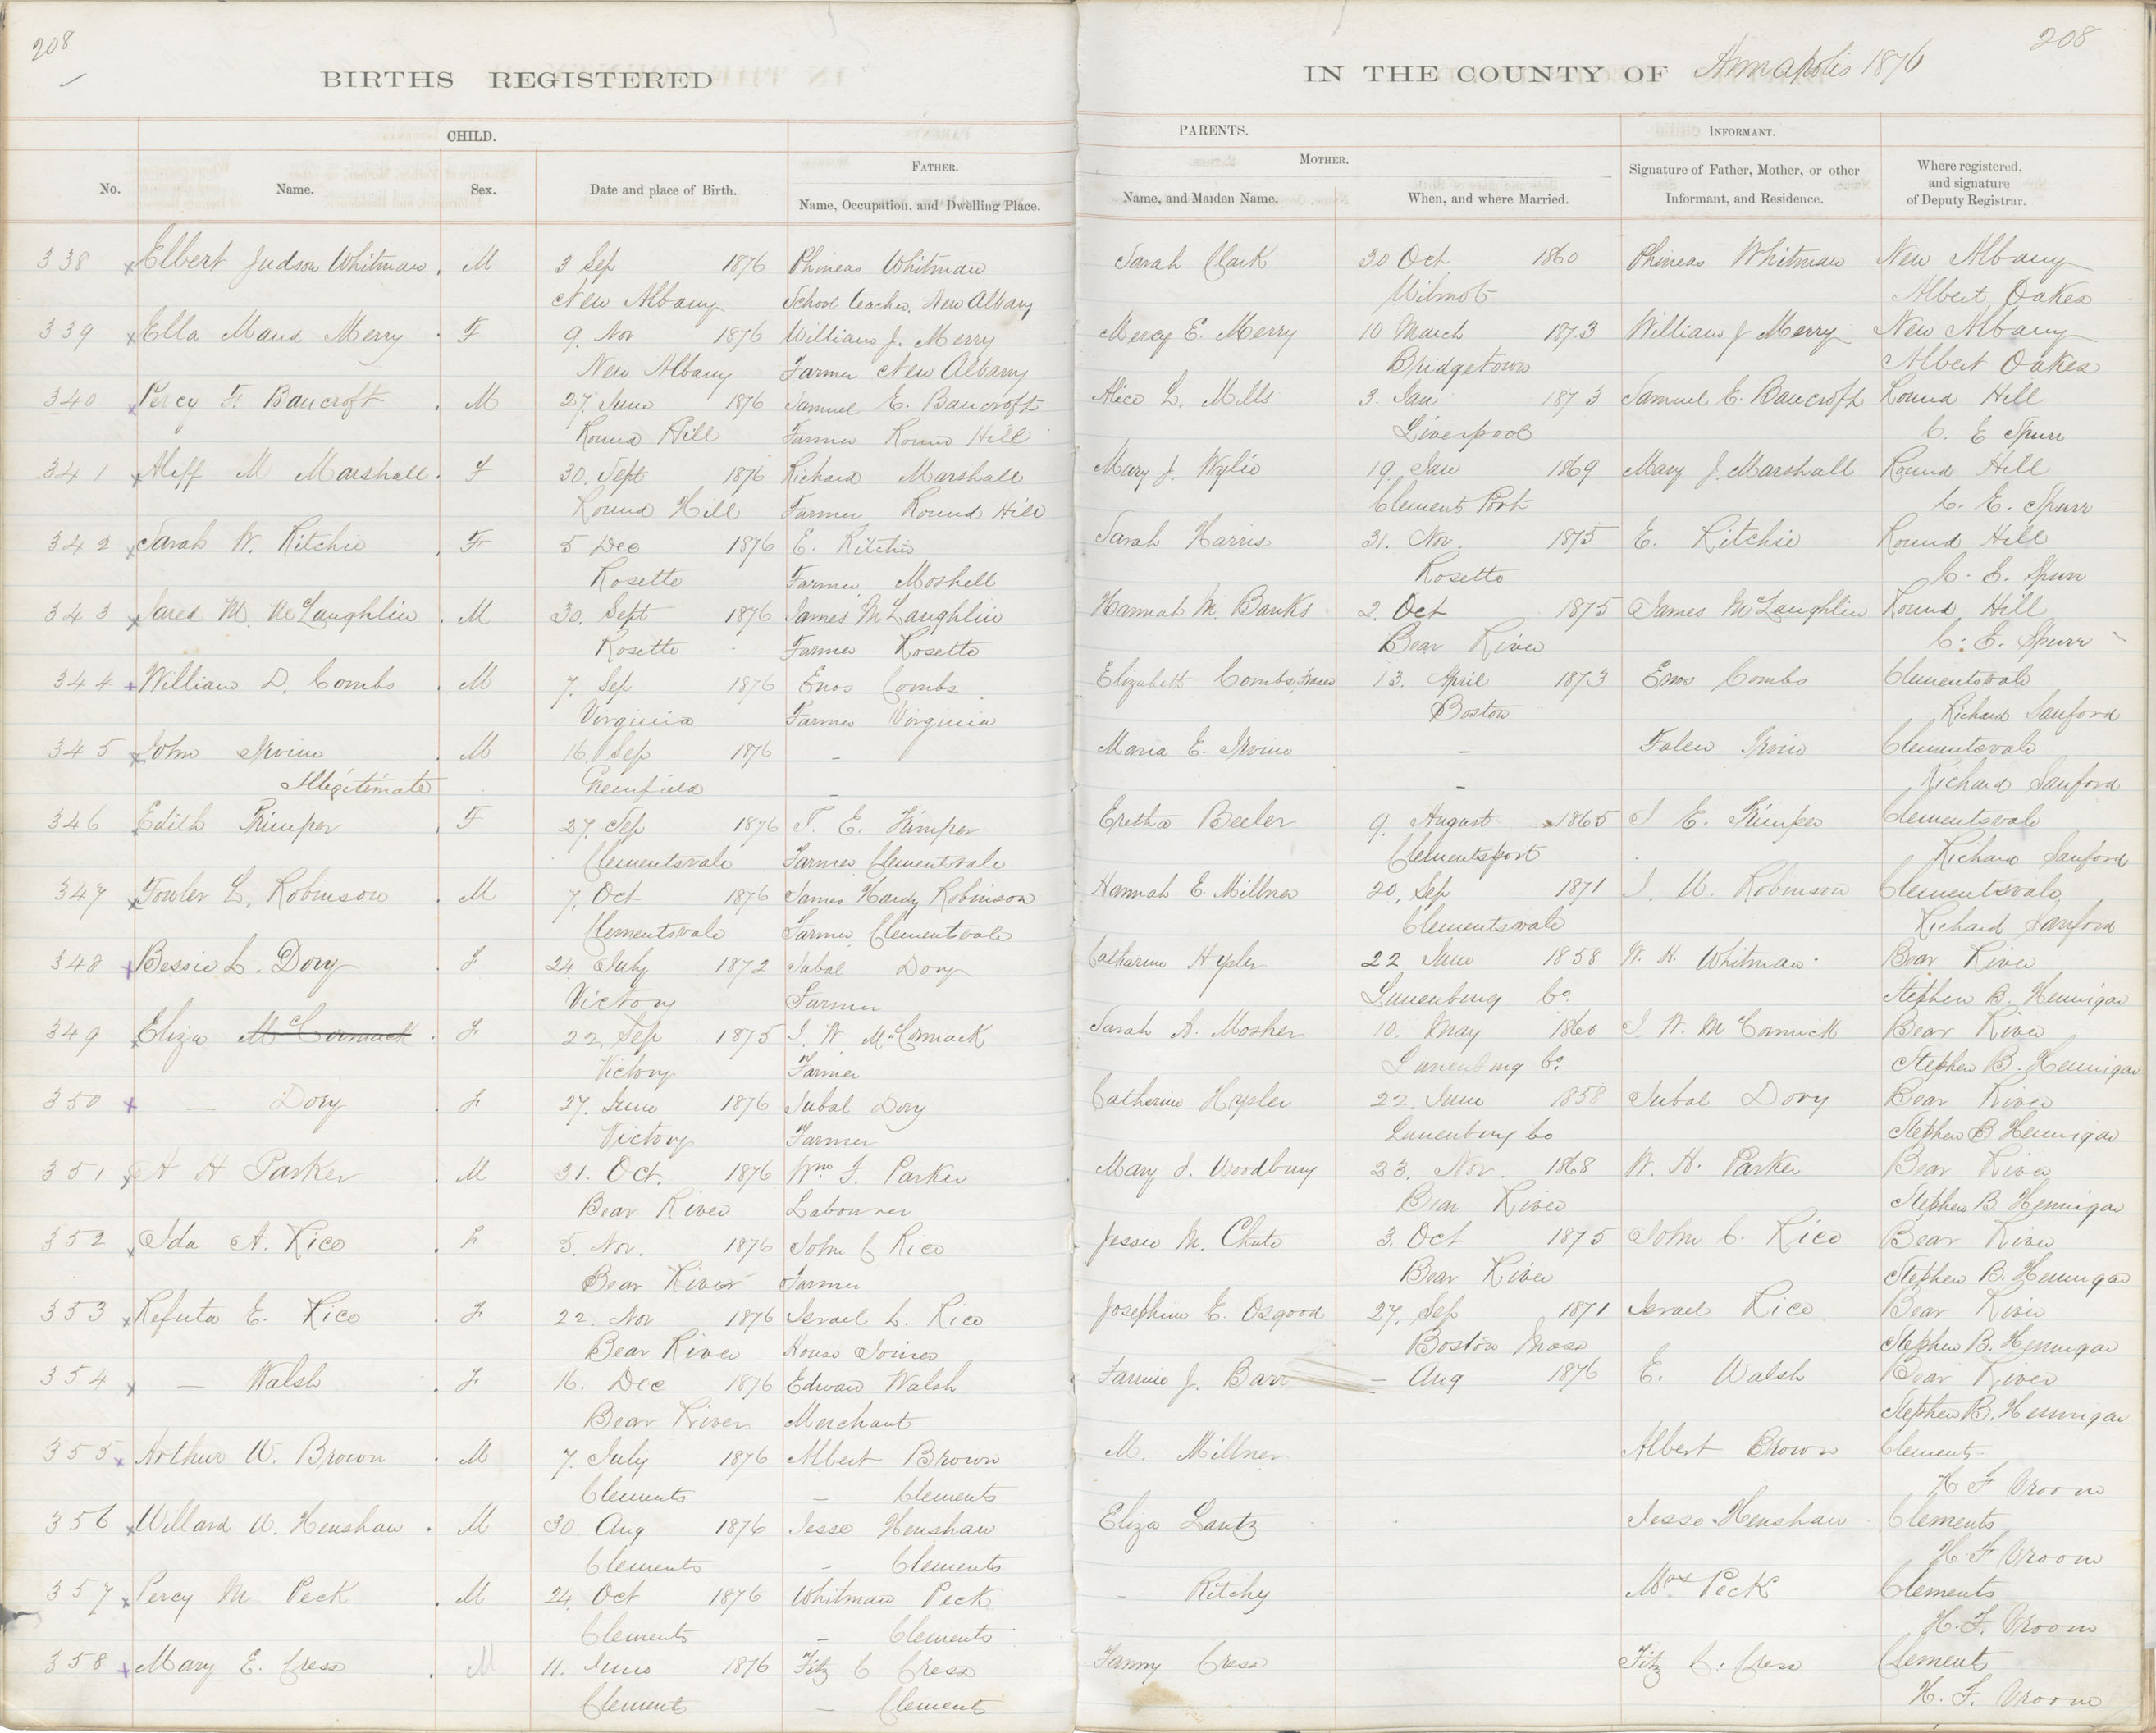 208
208
BIRTHS REGISTERED
IN THE COUNTY OF Annapolis 1876
CHILD.
PARENTS.
INFORMANT.
No.
Name.
Sex.
Date and place of Birth.
FATHER.
Name, Occupation, and Dwelling Place.
MOTHER.
Name, and Maiden Name.
When, and where Married.
Signature of Father, Mother, or other
Informant, and Residence.
Where registered,
and signature
of Deputy Registrar.
338 x Elbert Judson Whitman . M 3 Sep 1876 Phineas Whitman Sarah Clark 30 Oct 1860 Phineas Whitman New Albany
New Albany School teacher, New Albany Wilmot Albert Oakes
339 x Ella Maud Merry . F 9. Nov 1876 William J. Merry Mercy E. Merry 10 March 1873 William J Merry New Albany
New Albany Farmer New Albany Bridgetown Albert Oakes
340 x Percy F. Bancroft . M 27. June 1876 Samuel E. Bancroft Alice L. Mills 3. Jan 1873 Samuel E. Bancroft Round Hill
Round Hill Farmer Round Hill Liverpool C. E Spurr
341 x Aliff M Marshall . F 30. Sept 1876 Richard Marshall Mary J. Wylie 19. Jan 1869 Mary J. Marshall Round Hill
Round Hill Farmer Round Hill Clements Port C. E. Spurr
342 x Sarah W. Ritchie . F 5 Dec 1876 E. Ritchie Sarah Harris 31. Nov. 1875 E. Ritchie Round Hill
Rosette Farmer Moshell Rosette C. E. Spurr
343 x Jared M. McLaughlin . M 30. Sept 1876 James McLaughlin Hannah M. Banks 2. Oct 1875 James McLaughlin Round Hill
Rosette Farmer Rosette Bear River C. E. Spurr
344 + William D. Combs . M 7. Sep 1876 Enos Combs Elizabeth Combs, 13. April 1873 Enos Combs Clementsvale
Virginia Farmer Virginia Boston Richard Sanford
345 x John Irvine . M 16. Sep 1876 - Maria E. Irvine - Irvin Clementsvale
Illegitimate Greenfield - - Richard Sanford
346 Edith Trimper . F 27. Sep 1876 T. E. Trimper Eretha Beeler 9. August 1865 T E. Trimper Clementsvale
Clementsvale Farmer Clementsvale Clementsport Richard Sanford
347 x Fowler L. Robinson . M 7. Oct 1876 James Hardy Robinson Hannah E. Millner 20. Sep 1871 J. H. Robinson Clementsvale
Clementsvale Farmer Clementsvale Clementsvale Richard Sanford
348 x Bessie L. Dory . F 24 July 1872 Jubal Dory Catharine Hysler 22 June 1858 W. H. Whitman Bear River
Victory Farmer Lunenburg Co. Stephen B. Hennigar
349 x Eliza McCormack . F 22. Sep 1875 J. W. McCormack Sarah A. Mosher 10. May 1860 J. W. McCormick Bear River
Victory Farmer Lunenburg Co. Stephen B. Hennigar
350 x — Dory . F 27. June 1876 Jubal Dory Catherine Hysler 22. June 1858 Jubal Dory Bear River
Victory Farmer Lunenburg Co Stephen B Hennigar
351 x A H Parker . M 31. Oct. 1876 Wm. F. Parker Mary J. Woodbury 23. Nov. 1868 W. H. Parker Bear River
Bear River Labourer Bear River Stephen B. Hennigar
352 x Ida A. Rice . F 5. Nov. 1876 John C Rice Jessie M. Chute 3. Oct 1875 John C. Rice Bear River
Bear River Farmer Bear River Stephen B. Hennigar
353 x Refuta E. Rice . F 22. Nov 1876 Israel L. Rice Josephine E. Osgood 27. Sep 1871 Israel Rice Bear River
Bear River House Joiner Boston Mass Stephen B. Hennigar
354 x — Walsh . F 16. Dec 1876 Edward Walsh Fannie J. Barr — Aug 1876 E. Walsh Bear River
Bear River Merchant Stephen B. Hennigar
355 x Arthur W. Brown . M 7. July 1876 Albert Brown M. Millner Albert Brown Clements
Clements — Clements H F Vroom
356 x Willard W. Henshaw . M 30. Aug 1876 Jesse Henshaw Eliza Lantz Jesse Henshaw Clements
Clements - Clements H. F Vroom
357 x Percy M Peck . M 24. Oct 1876 Whitman Peck - Ritchy Mrs Peck Clements
Clements — Clements H. F. Vroom
358 + Mary E. Cress . M 11. June 1876 Fitz C Cress Fanny Cress Fitz C. Cress Clements
Clements — Clements H. F. Vroom